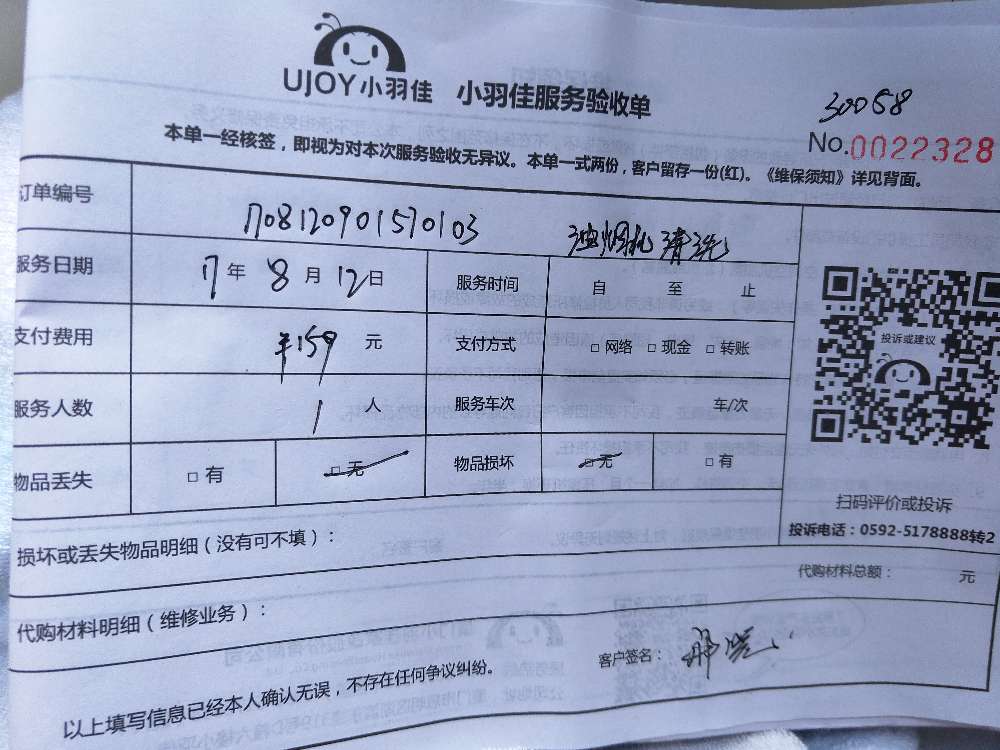 UJOY小羽佳 小羽佳服务验收单
30058
No.0022328
本单一经核签，即视为对本次服务验收无异议。本单一式两份，客户留存一份(红)。《维保须知》详见背面。
订单编号 1708120901570103 油烟机清洗
服务日期 17年8月12日 服务时间 自 至 止
支付费用 ¥159 元 支付方式 □网络 □现金 □转账
服务人数 1 人 服务车次 车/次
物品丢失 □有 □无 物品损坏 □无 □有
投诉或建议
扫码评价或投诉
投诉电话：0592-5178888转2
损坏或丢失物品明细（没有可不填）：
代购材料总额： 元
代购材料明细（维修业务）：
客户签名：
以上填写信息已经本人确认无误，不存在任何争议纠纷。